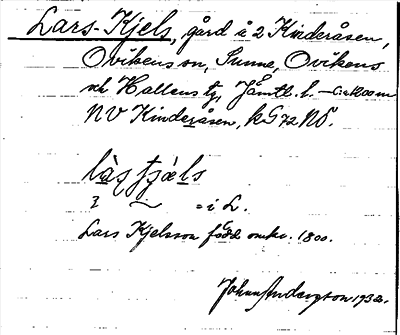 Lars-Kjels, gård å 2 Kinderåsen,
Ovikens sn, Sunne, Ovikens
och Hallens tg, Jämtl. l. — Ca 1200 m
NV Kinderåsen, kG 72 NÖ.
là̱s fjæls
= i L.
Lars Kjelsson född omkr. 1800.
Johan Anderzson 1932.